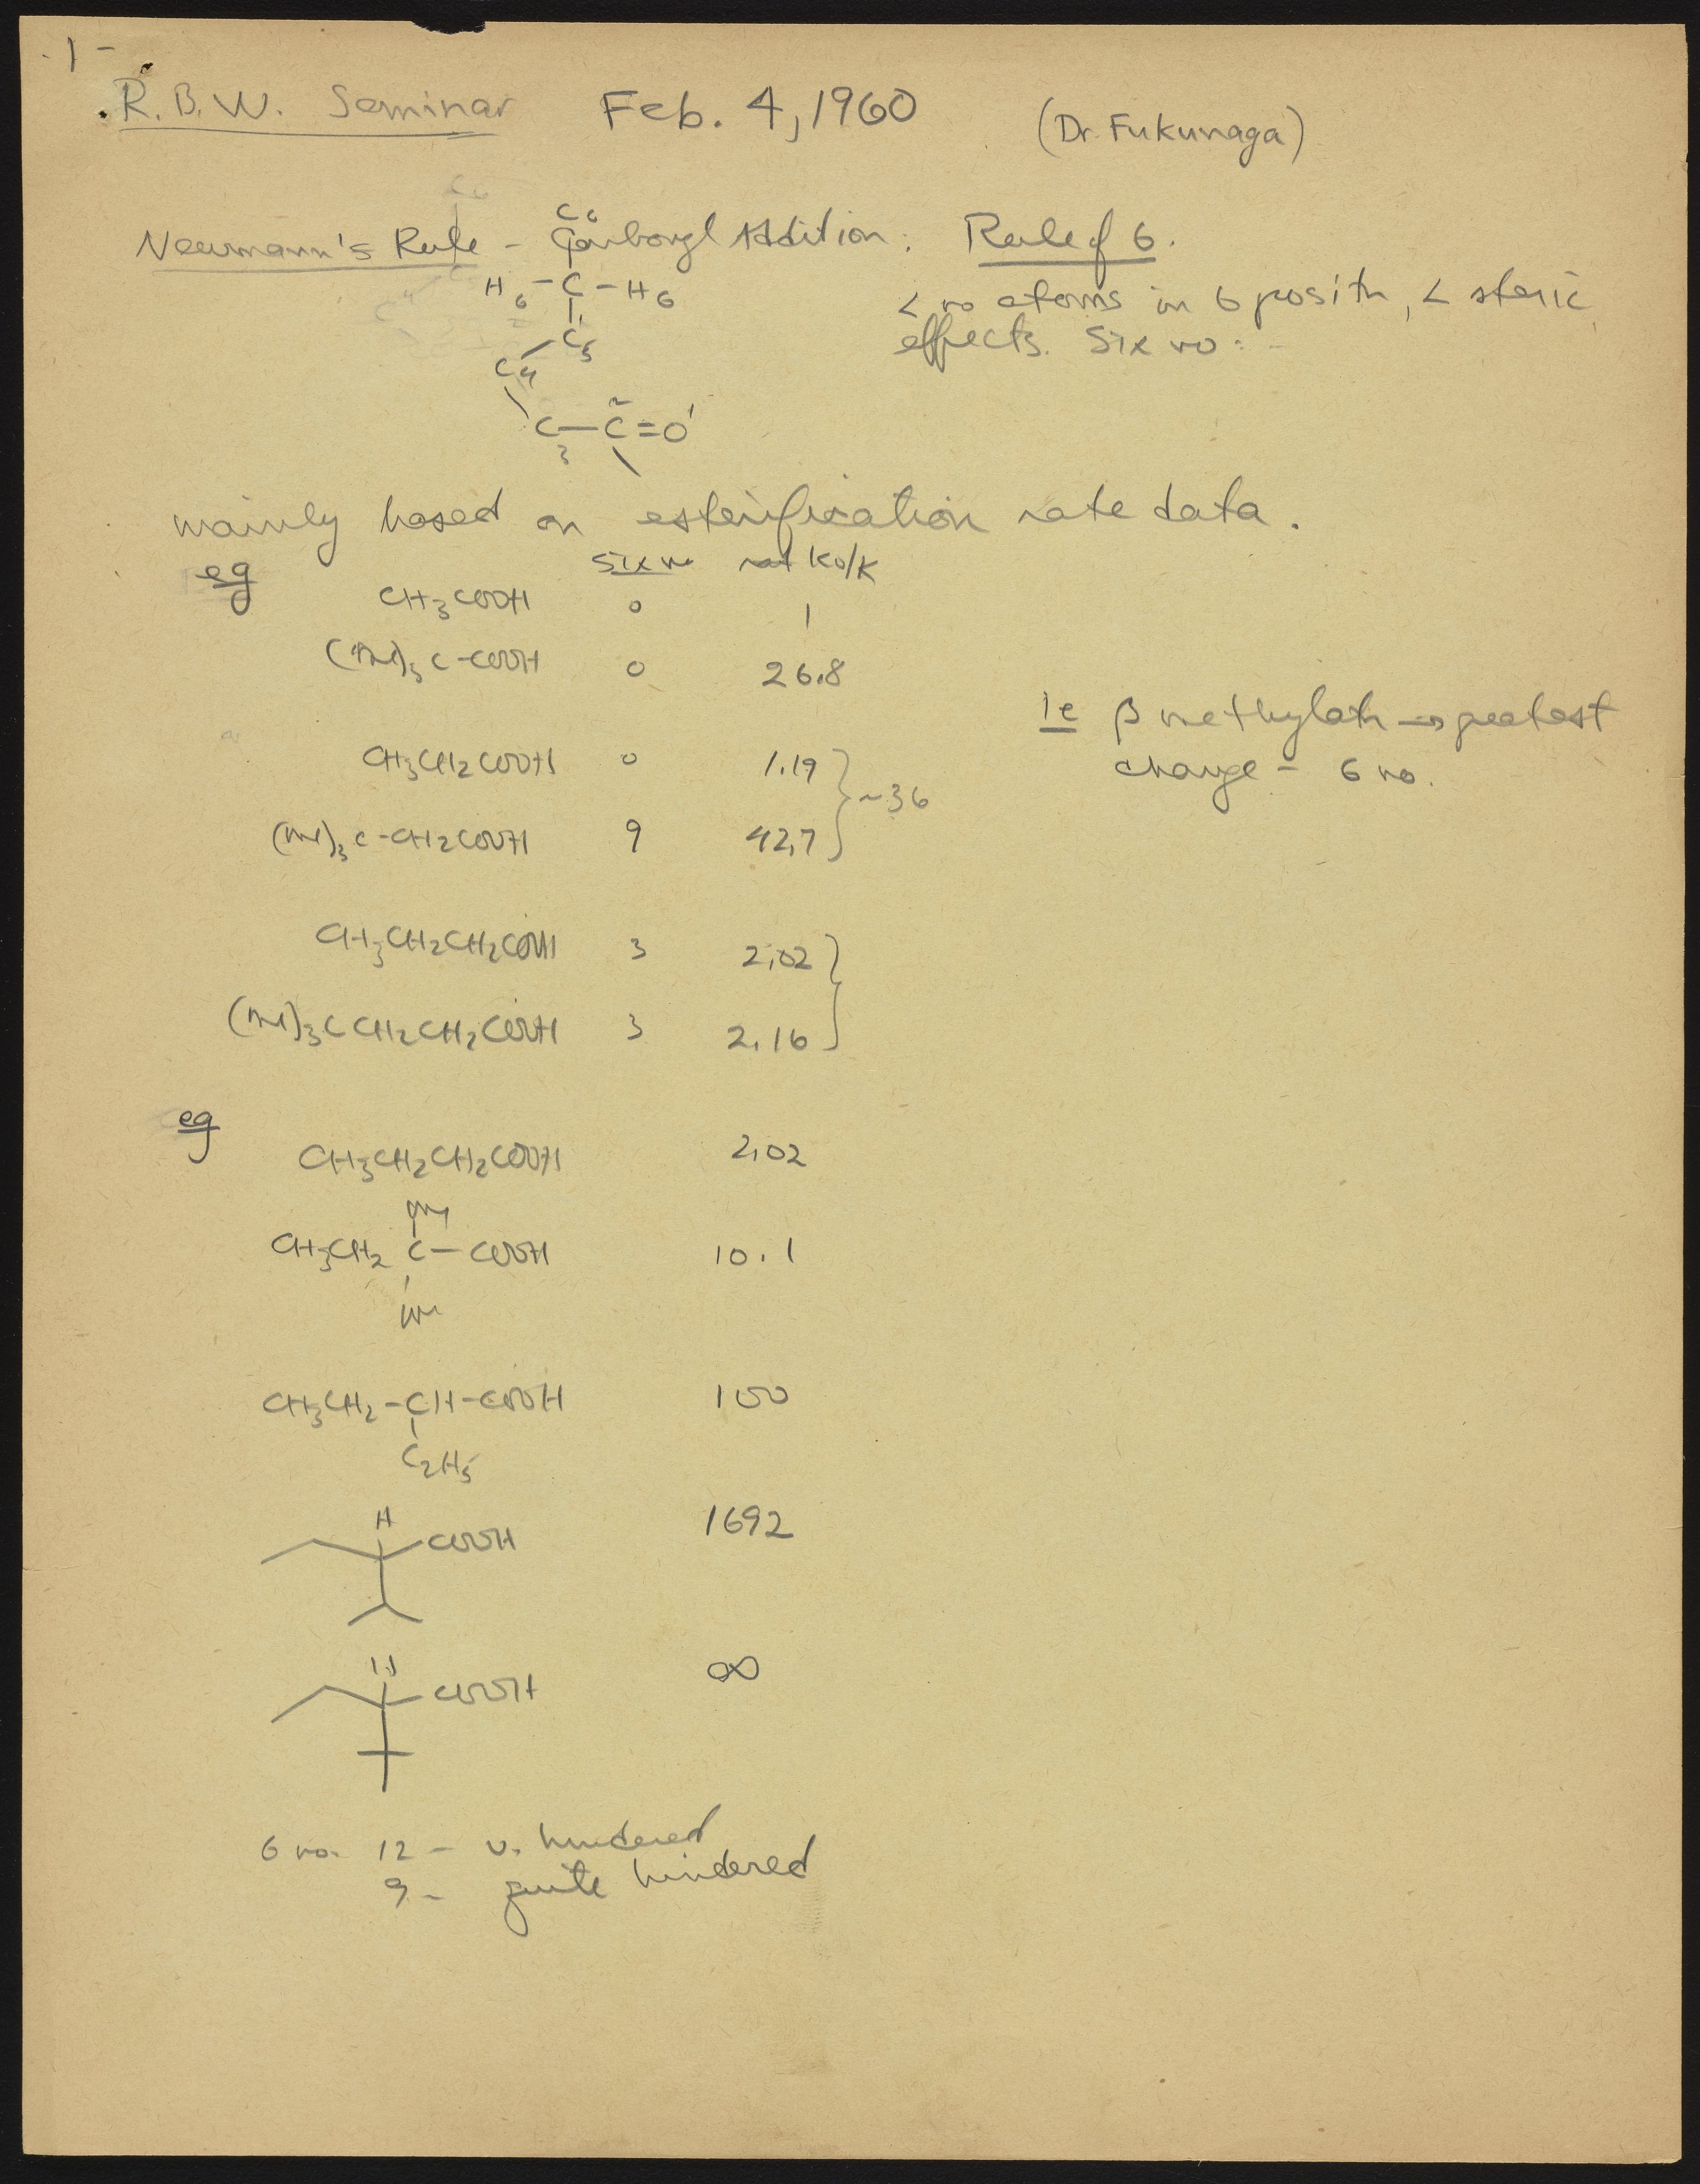 - 1 -
R. B. W. Seminar Feb. 4, 1960 (Dr. Fukunaga)
Newmann's Rule - Carbonyl Addition: Rule of 6.
C6
H6 - C - H6
C5
C4
C3 - C2 = O1
< no atoms in 6 positn, < steric
effects. Six no: -
mainly based on esterification rate data.
eg Six no Ko/K
CH3COOH 0 1
(Me)3C-COOH 0 26.8
CH3CH2COOH 0 1.19
~36
(Me)3C-CH2COOH 9 42.7
CH3CH2CH2COOH 3 2.02
(Me)3CCH2CH2COOH 3 2.16
ie β methylatn → greatest
change - 6 no.
eg
CH3CH2CH2COOH 2.02
Me
CH3CH2 C - COOH 10.1
Me
CH3CH2-CH-COOH 100
C2H5
H
COOH 1692
H
COOH ∞
6 no. 12 - v. hindered
9 - quite hindered